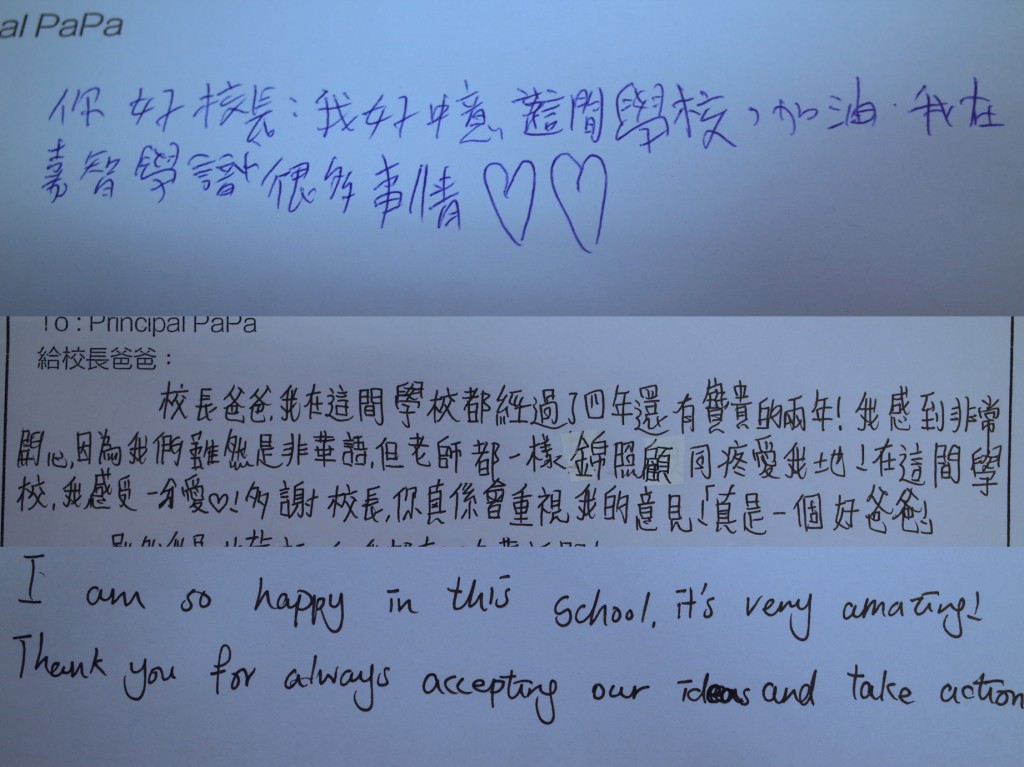 al PaPa
你好校長：我好中意這間學校，加油．我在
嘉智學識很多事情♡♡
To : Principal PaPa
給校長爸爸：
校長爸爸，我在這間學校都經過了四年還有寶貴的兩年！我感到非常
開心，因為我們雖然是非華語，但老師都一樣錦照顧同疼愛我地！在這間學
校，我感受一份愛♡！多謝校長，你真係會重視我的意見！真是一個好爸爸！
I am so happy in this school. it's very amating!
Thank you for always accepting our ideas and take action